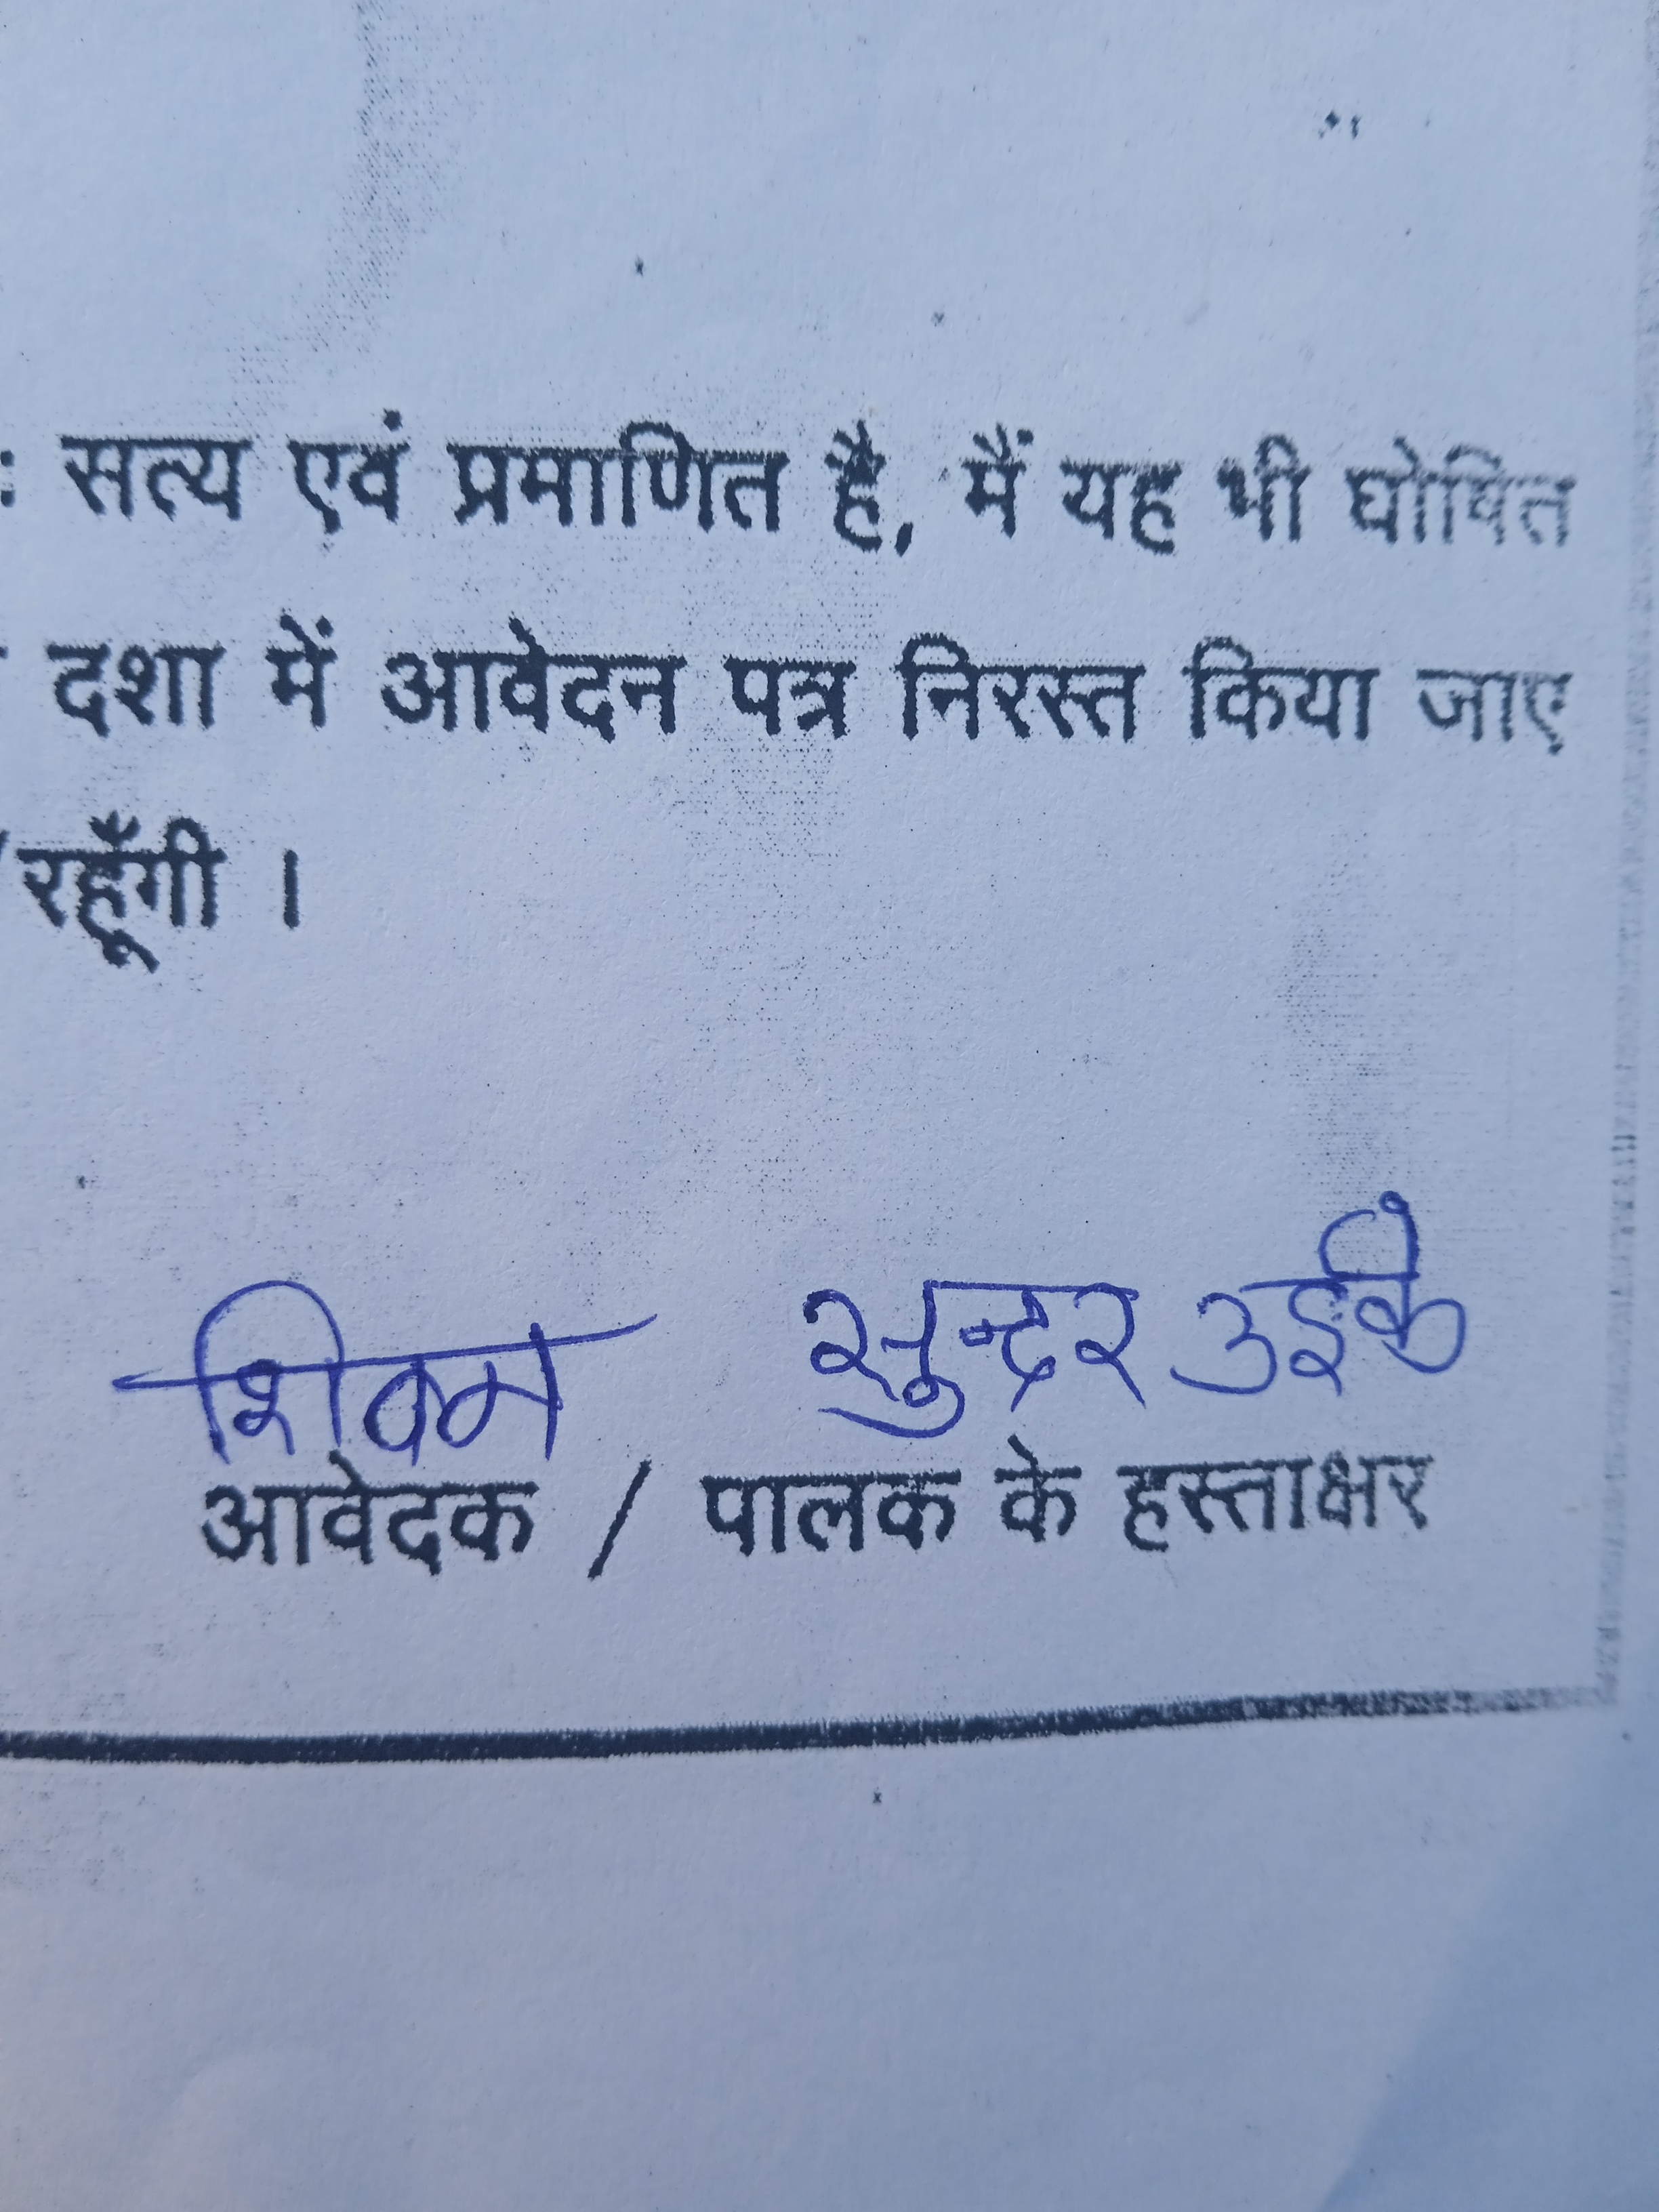 : सत्य एवं प्रमाणित है, मैं यह भी घोषित
दशा में आवेदन पत्र निरस्त किया जाए
/रहूँगी ।
शिवम सुन्दर उईके
आवेदक / पालक के हस्ताक्षर